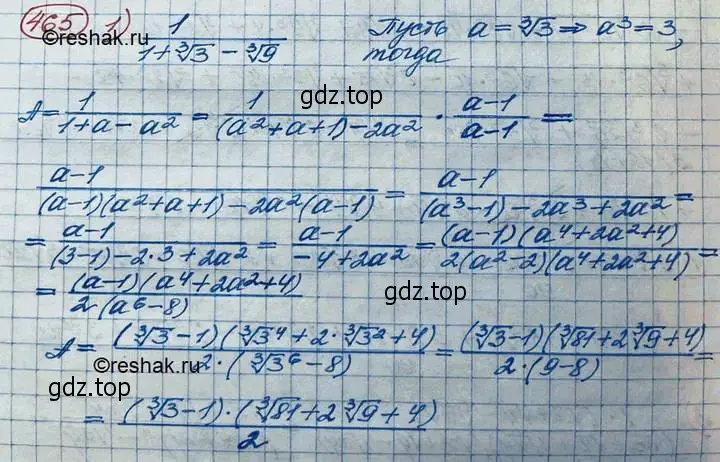 465 1) 1/(1+∛3 − ∛9) Пусть a = ∛3 ⇒ a³ = 3,
©reshak.ru тогда
gdz.top
A = 1/(1+a−a²) = 1/((a²+a+1)−2a²) · (a−1)/(a−1) =
(a−1)/((a−1)(a²+a+1)−2a²(a−1)) = (a−1)/((a³−1)−2a³+2a²) =
= (a−1)/((3−1)−2·3+2a²) = (a−1)/(−4+2a²) = (a−1)(a⁴+2a²+4)/(2(a²−2)(a⁴+2a²+4)) =
= (a−1)(a⁴+2a²+4)/(2(a⁶−8))
gdz.top
A = (∛3−1)(∛3⁴+2·∛3²+4)/(2·(∛3⁶−8)) = (∛3−1)(∛81+2∛9+4)/(2·(9−8)) =
©reshak.ru
gdz.top
= (∛3−1)·(∛81+2∛9+4)/2